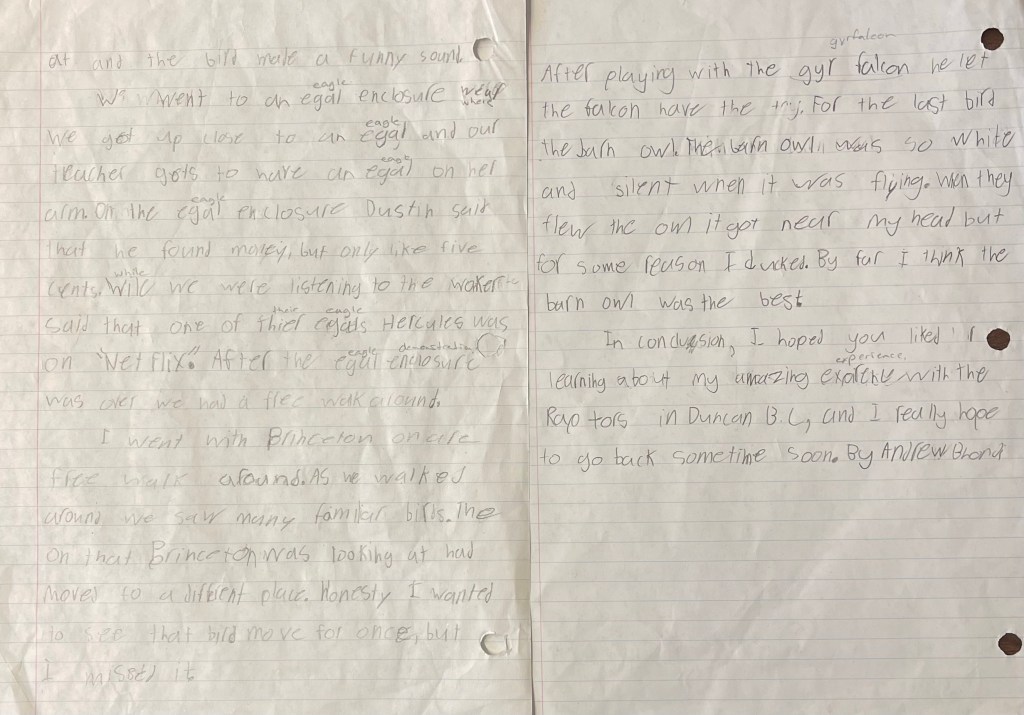 at and the bird made a funny sound.
eagle
We went to an egal enclosure wear
where
eagle
we got up close to an egal and our
eagle
teacher gots to have an egal on her
eagle
arm. On the egal enclosure Dustin said
that he found money, but only like five
while
cents. Wile we were listening to the
their eagle
said that one of thier egals Hercules was
eagle demonstration
on "NetFlix". After the egal enclosure
was over we had a free walk around.
I went with Brinceton on are
free walk around. As we walked
around we saw many familar birds. The
on that Brinceton was looking at had
moved to a diffrent place. Honesty I wanted
to see that bird move for once, but
I missed it
gyrfalcon
After playing with the gyr falcon he let
the falcon have the try. For the last bird
the barn owl. The barn owl was so white
and silent when it was flying. When they
flew the owl it got near my head but
for some reason I ducked. By far I think the
barn owl was the best
In conclusion, I hoped you liked
experience.
learning about my amazing with the
Raptors in Duncan B.C, and I really hope
to go back sometime soon. By Andrew Bhond